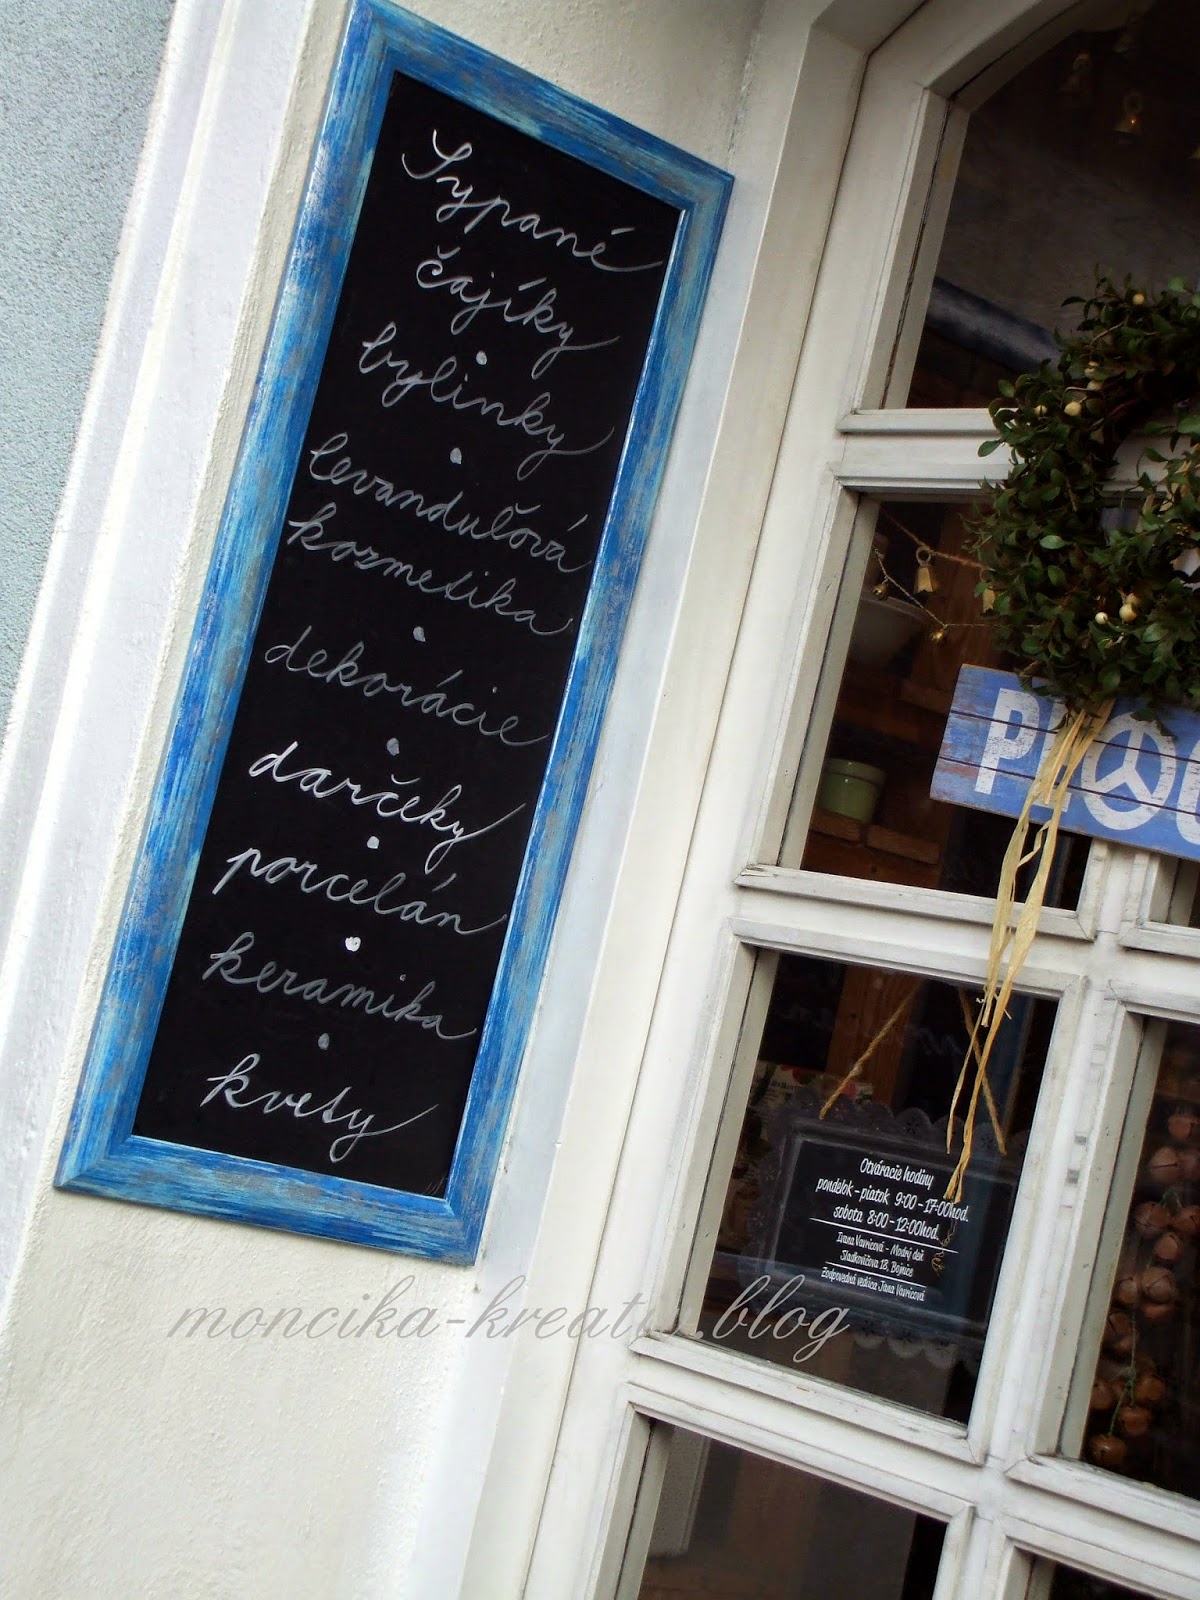 Sypané
čajíky
•
bylinky
•
levanduľová
kozmetika
•
dekorácie
•
darčeky
•
porcelán
•
keramika
•
kvety
Otváracie hodiny
pondelok - piatok 9:00 - 17:00hod.
sobota 8:00 - 12:00hod.
Ivana Vavricová - Modrý deň
Sládkovičova 13, Bojnice
Zodpovedná vedúca Jana Vavricová
moncika-kreativ.blog